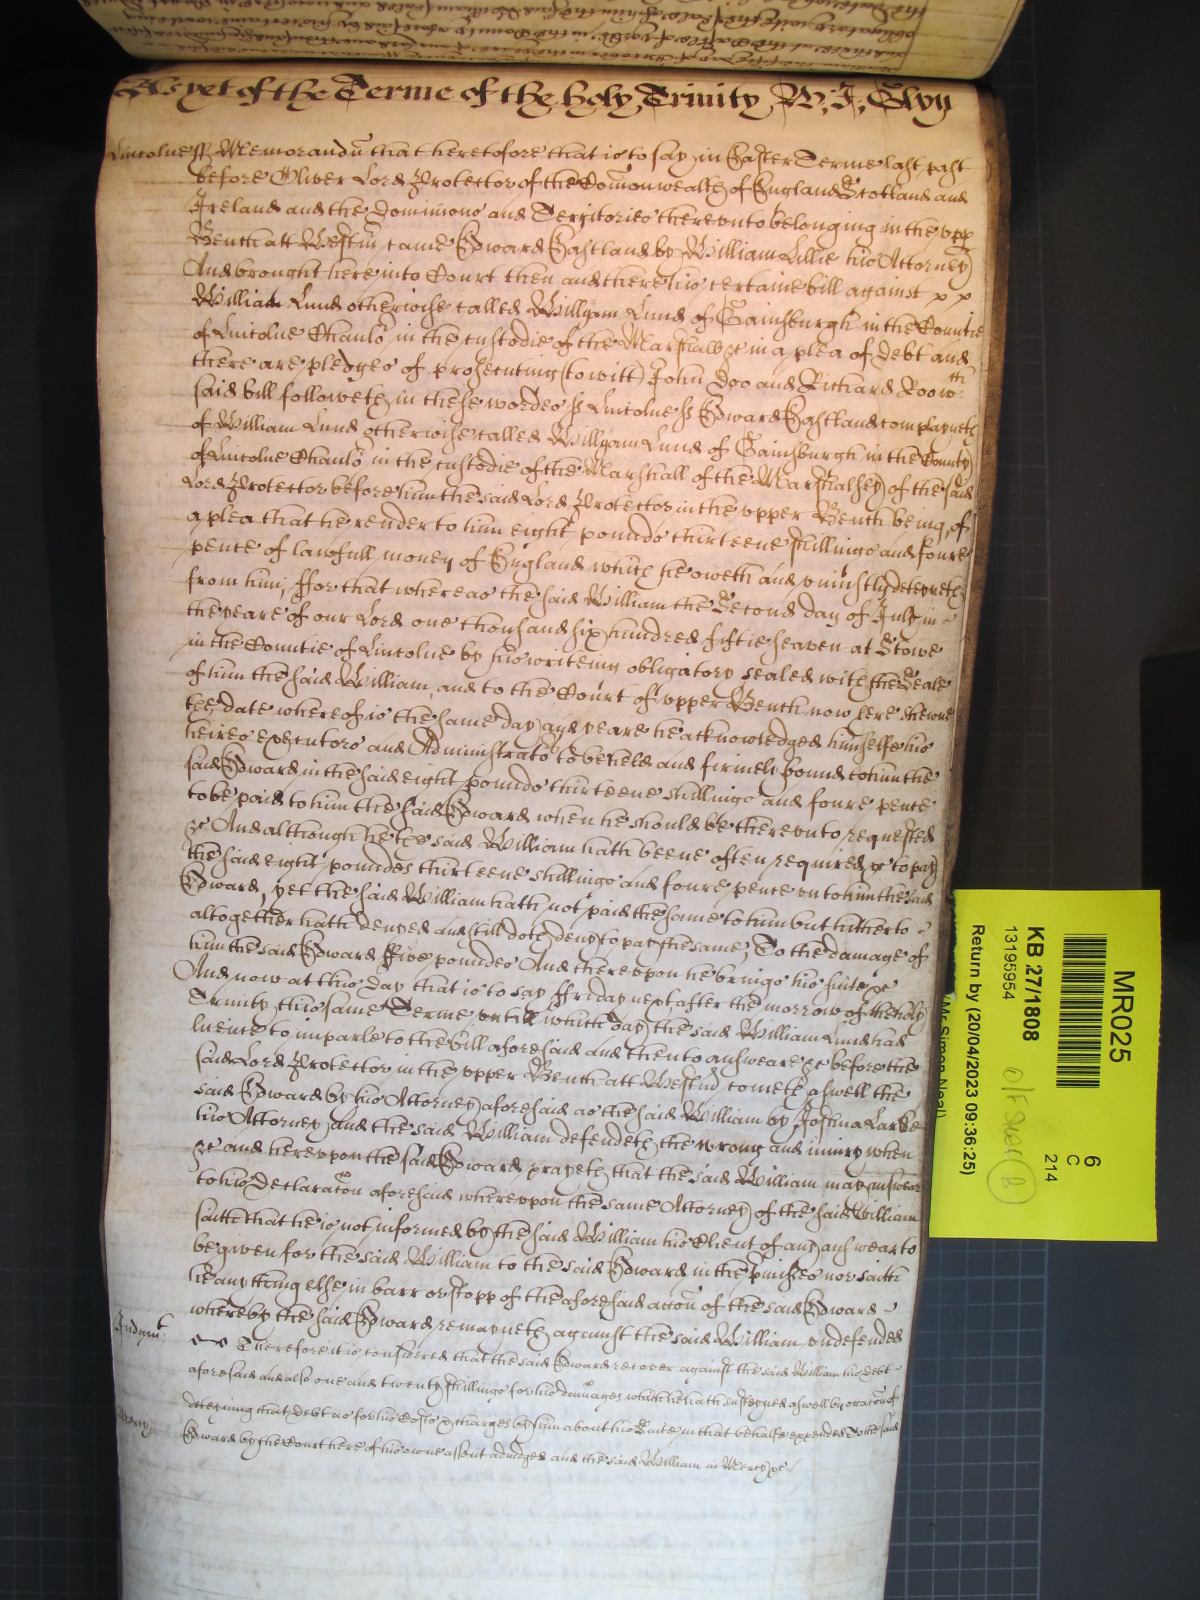 As yet of the Terme of the holy Trinity
Lincolne ss Memorandu that heretofore that is to say in Easter Terme last past
before Oliver Lord Protector of the Comonwealth of England Scotland and
Ireland and the Dominions and Territories thereunto belonging in the upp
Bench att Westm came Edward Eastland by William Lillie his Attorney
And brought here into Court then and there his certaine bill against x x
William Lund otherwise called Willyam Lund of Gainsburgh in the Countie
of Lincolne in the custodie of the Marshall &c in a plea of debt and
there are pledges of prosecuting (to witt) John Doo and Richard Roo wch
said bill followeth in these wordes ss Lincolne ss Edward Eastland complayneth
of William Lund otherwise called Willyam Lund of Gainsburgh in the County
of Lincolne in the custodie of the Marshall of the Marshalsey of the said
Lord Protector before him the said Lord Protector in the upper Bench being of
a plea that he render to him eight pounds thirteene shillings and foure
pence of lawfull money of England which he oweth and uniustly deteyneth
from him, ffor that whereas the said William the Second day of July in
the yeare of our Lord one thousand six hundred fiftie seaven at Stowe
in the Countie of Lincolne by his writeing obligatory sealed with the Seale
of him the said William and to the Court of upper Bench now here shewne
the date whereof is the same day and yeare he acknowledged himselfe his
heires executors and Administrators to be held and firmely bound to him the
said Edward in the said eight pounds thirteene shillings and foure pence
to be paid to him the said Edward when he should be thereunto requested
&c And although he the said William hath beene often required &c to pay
the said eight poundes thirteene shillings and foure pence unto him the said
Edward, yet the said William hath not paid the same to him but hitherto
altogether hath denyed and still doth deny to pay the same, To the damage of
him the said Edward ffive poundes And thereupon he brings his suite &c
And now at this day that is to say ffriday next after the morrow of the holy
Trinity this same Terme untill which day the said William Lund had
licence to imparle to the bill aforesaid and then to answeare &c before the
said Lord Protector in the upper Bench att Westm cometh aswell the
said Edward by his Attorney aforesaid as the said William by Joshua
his Attorney and the said William defendeth the wrong and iniury when
&c and hereupon the said Edward prayeth that the said William may answear
to his Declaracon aforesaid whereupon the same Attorney of the said William
saith that he is not informed by the said William his Client of any answear to
be given for the said William to the said Edward in the pmisses nor saith
he any thing else in barr or stopp of the aforesaid accon of the said Edward
whereby the said Edward remayneth against the said William undefended
Judgmt: Therefore it is considered that the said Edward recover against the said William his debt
aforesaid and also one and twenty shillings for his damages which he hath susteyned aswell by occacon of
deteyning that debt as for his Costs & charges by him about his Suite in that behalfe expended To the said
Mercy Edward by the Court here of his owne assent adiudged and the said William in Mercy &c
MR025
6
C
214
KB 27/1808
13195954
Return by (20/04/2023 09:36:25)
(Mr Simon Neal)